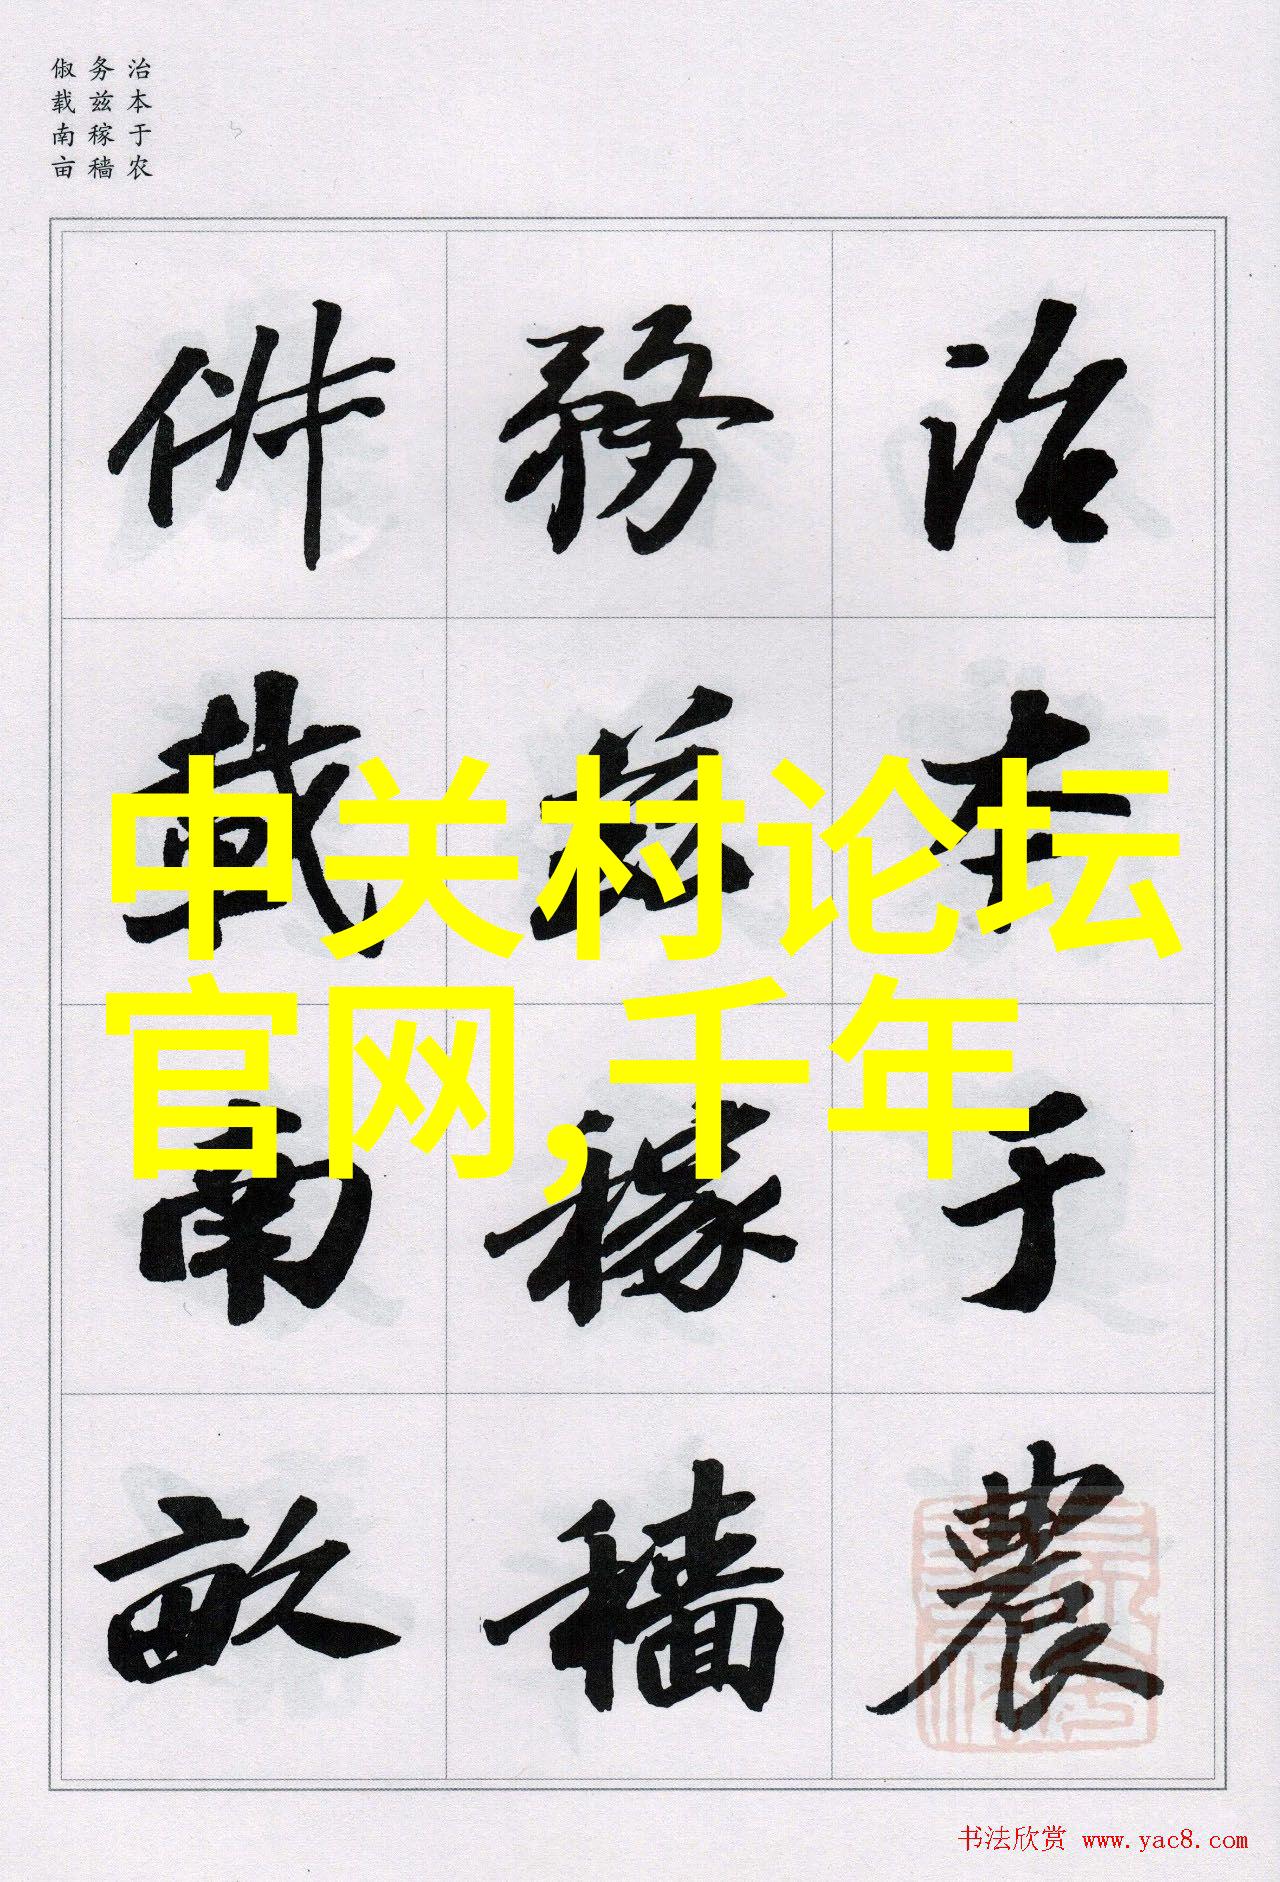 治本于农
务兹稼穑
俶载南亩
治本于農
務茲稼穡
俶載南畝
中关村论坛
官网,千年
书法欣赏 www.yac8.com